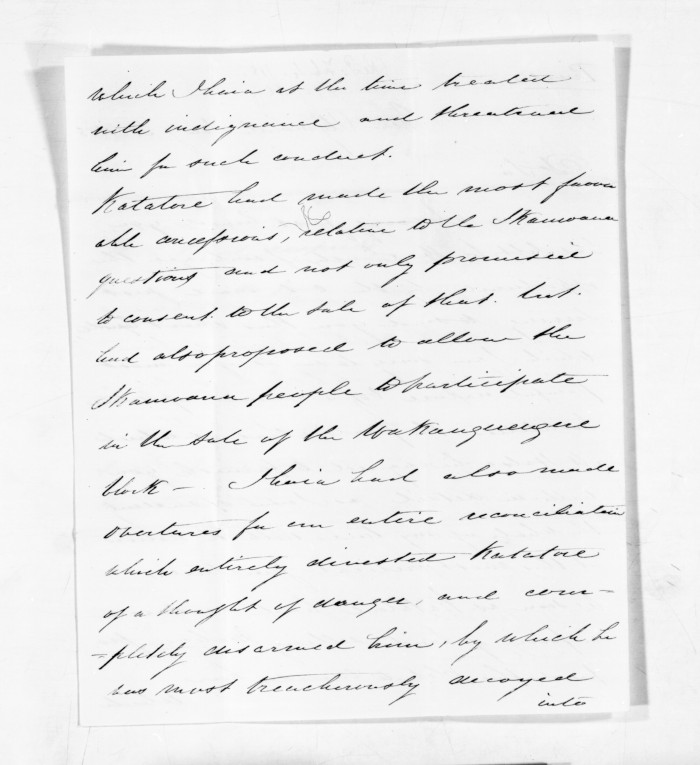 which Ihaia at the time treated
with indignance and threatened
him for such conduct.
Katatore had made the most favor
able concessions, relative to the Ikamoana
questions and not only promised
to consent to the sale of that. but.
had also proposed to allow the
Ikamoana people to participate
in the sale of the
block – Ihaia had also made
overtures for an entire reconciliation
which entirely divested Katatore
of a thought of danger, and com–
–pletely disarmed him, by which he
was most treacherously decoyed
into